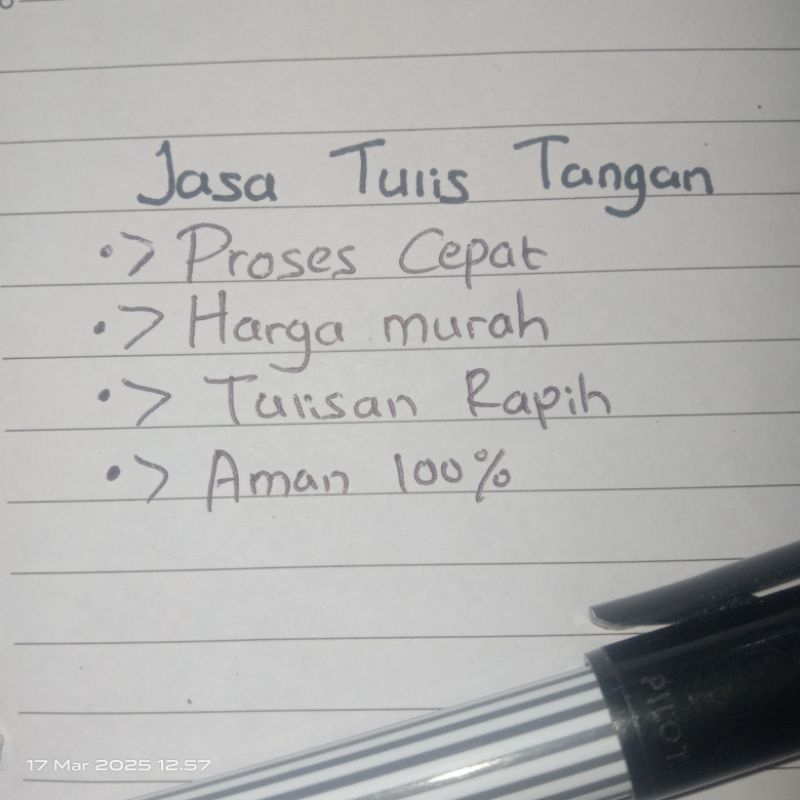 Jasa Tulis Tangan
•> Proses Cepat
•> Harga murah
•> Tulisan Rapih
•> Aman 100%
PILOT
17 Mar 2025 12.57